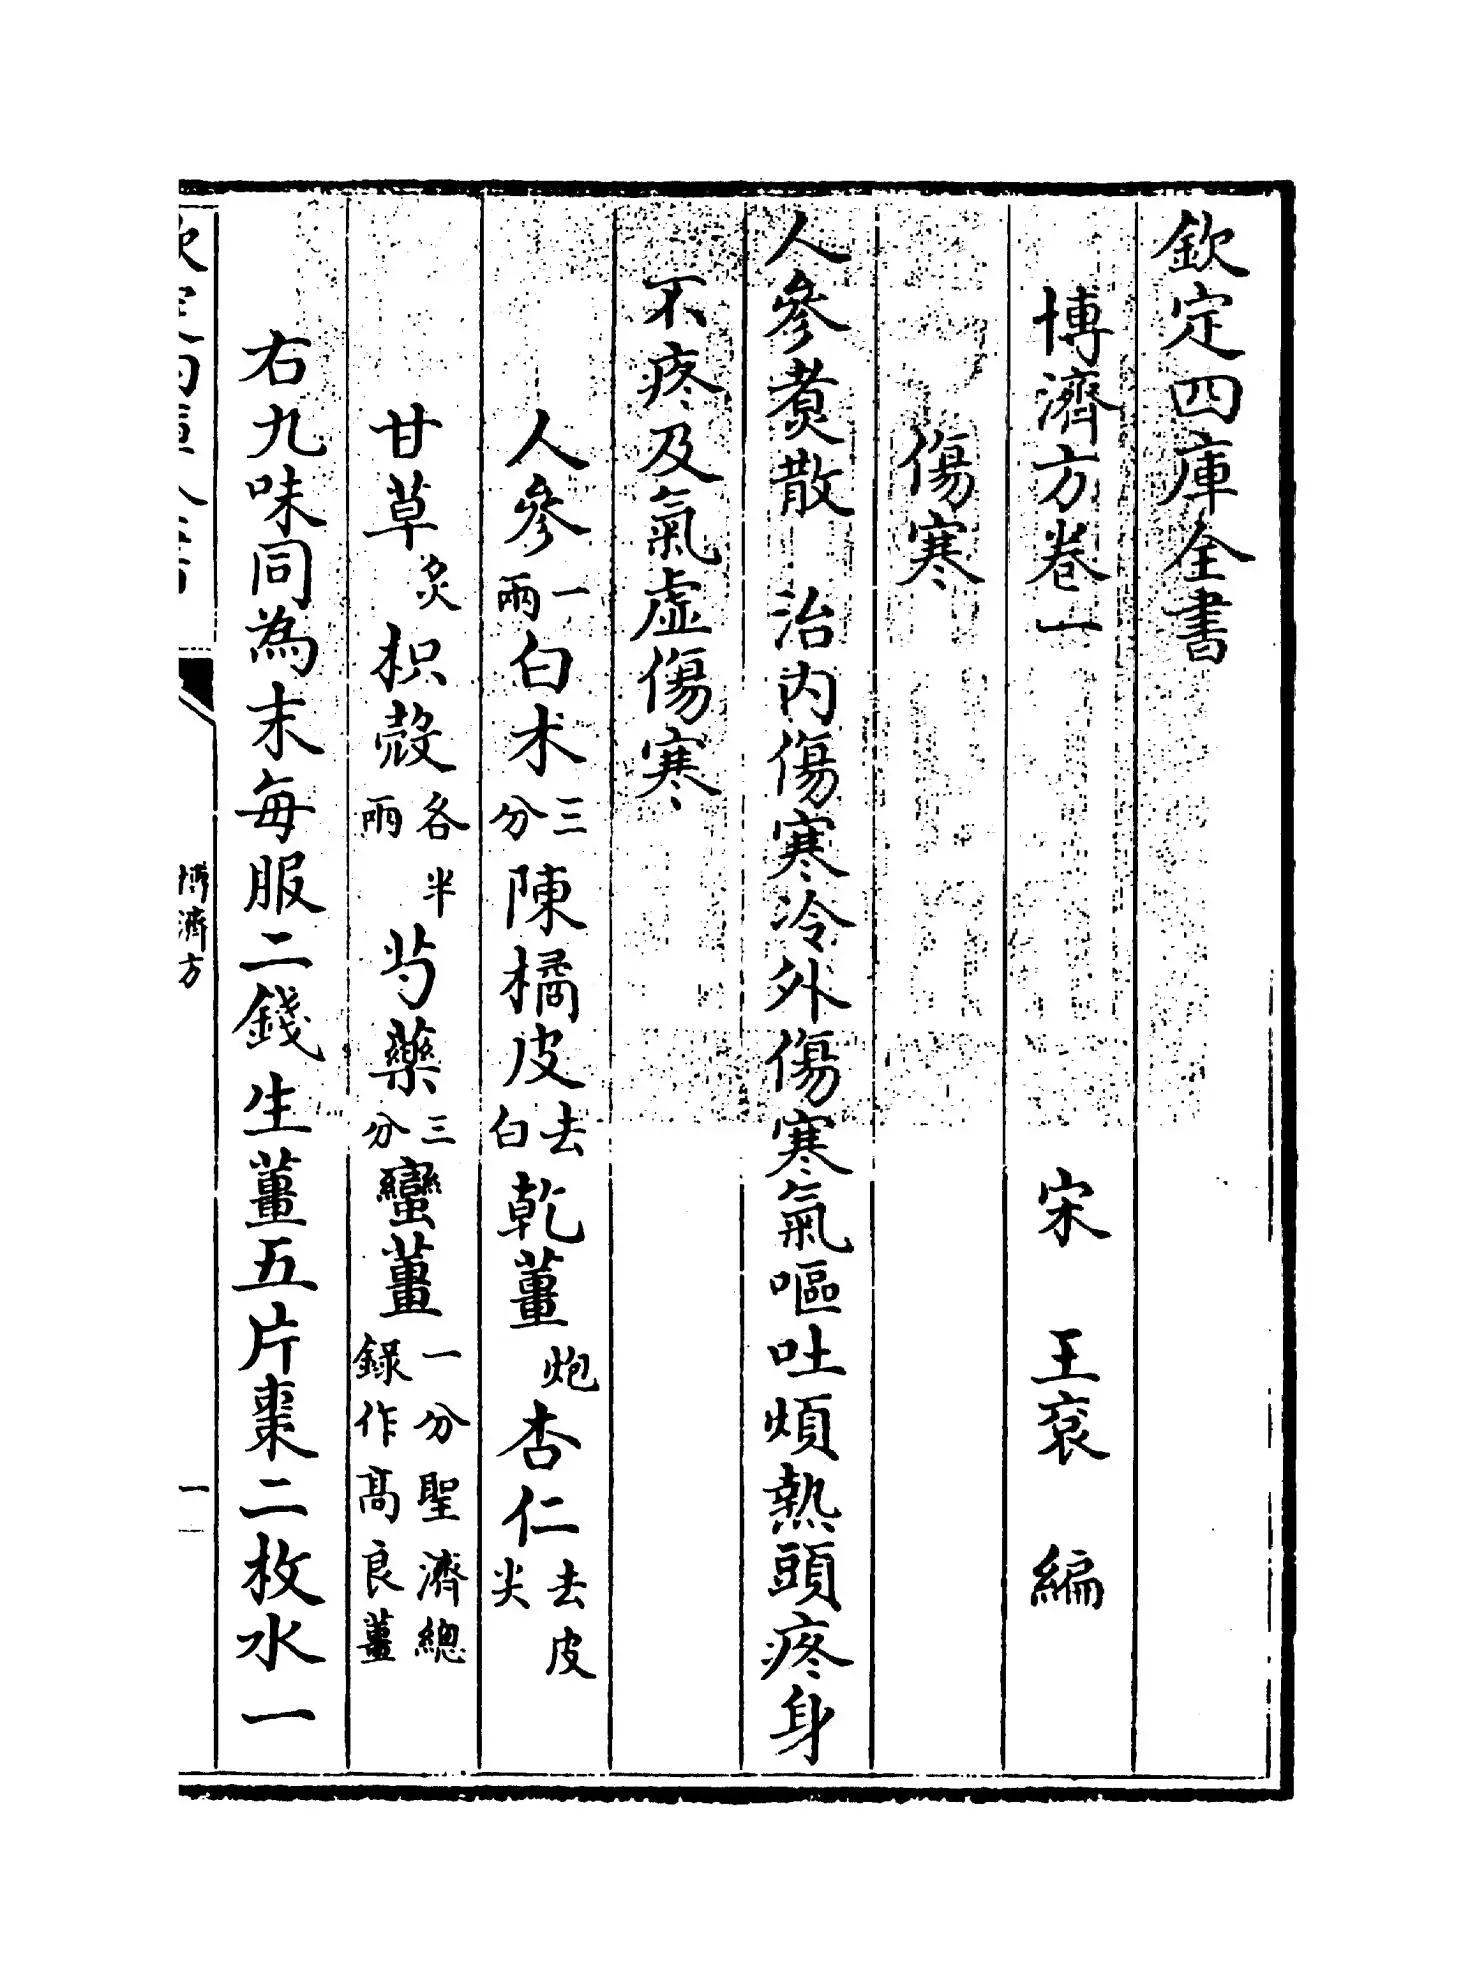 欽定四庫全書
博濟方卷一 宋 王袞 編
傷寒
人參煑散 治內傷寒冷外傷寒氣嘔吐煩熱頭疼身
不疼及氣虛傷寒
人參一兩白朮三分陳橘皮去白乾薑炮杏仁去皮尖
甘草炙枳殼各半兩芍藥三分蠻薑一分聖濟總錄作高良薑
右九味同為末每服二錢生薑五片棗二枚水一
欽定四庫全書
博濟方
一